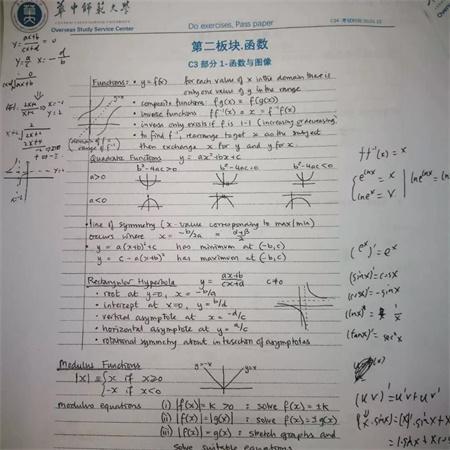 華中師範大學
Overseas Study Service Center
Do exercises, Pass paper
第二板块.函数
C3 部分 1-函数与图像
Functions: • y = f(x) for each value of x in the domain there is
only one value of y in the range
• composite functions fg(x) = f(g(x))
• inverse functions ff⁻¹(x) = x = f⁻¹f(x)
• inverse only exists if f is 1-1 (increasing or decreasing)
• to find f⁻¹, rearrange to get x as the subject
then exchange x for y and y for x.
Quadratic Functions y = ax²+bx+c
b²-4ac>0 b²-4ac=0 b²-4ac<0
a>0
a<0
• line of symmetry (x value corresponding to max/min)
occurs where x = -b/2a =
• y = a(x+b)²+c has minimum at (-b,c)
• y = c-a(x+b)² has maximum at (-b,c)
Rectangular Hyperbola y = ax+b/cx+d c≠0
• root at y=0, x = -b/a
• intercept at x=0, y = b/d
• vertical asymptote at x = -d/c
• horizontal asymptote at y = a/c
• rotational symmetry about intersection of asymptotes
Modulus Functions
|x| = {x if x≥0
-x if x<0
y=-x y=x
modulus equations (i) |f(x)| = k >0 : solve f(x) = ±k
(ii) |f(x)| = |g(x)| : solve f(x) = ±g(x)
(iii) |f(x)| = g(x) : sketch graphs and
solve suitable equations
ff⁻¹(x) = x
e^lnx = x
lne^x = x
(e^x)' = e^x
(sinx)' = cosx
(cosx)' = -sinx
(lnx)' = 1/x
(tanx)' = sec²x
(uv)' = u'v + uv'